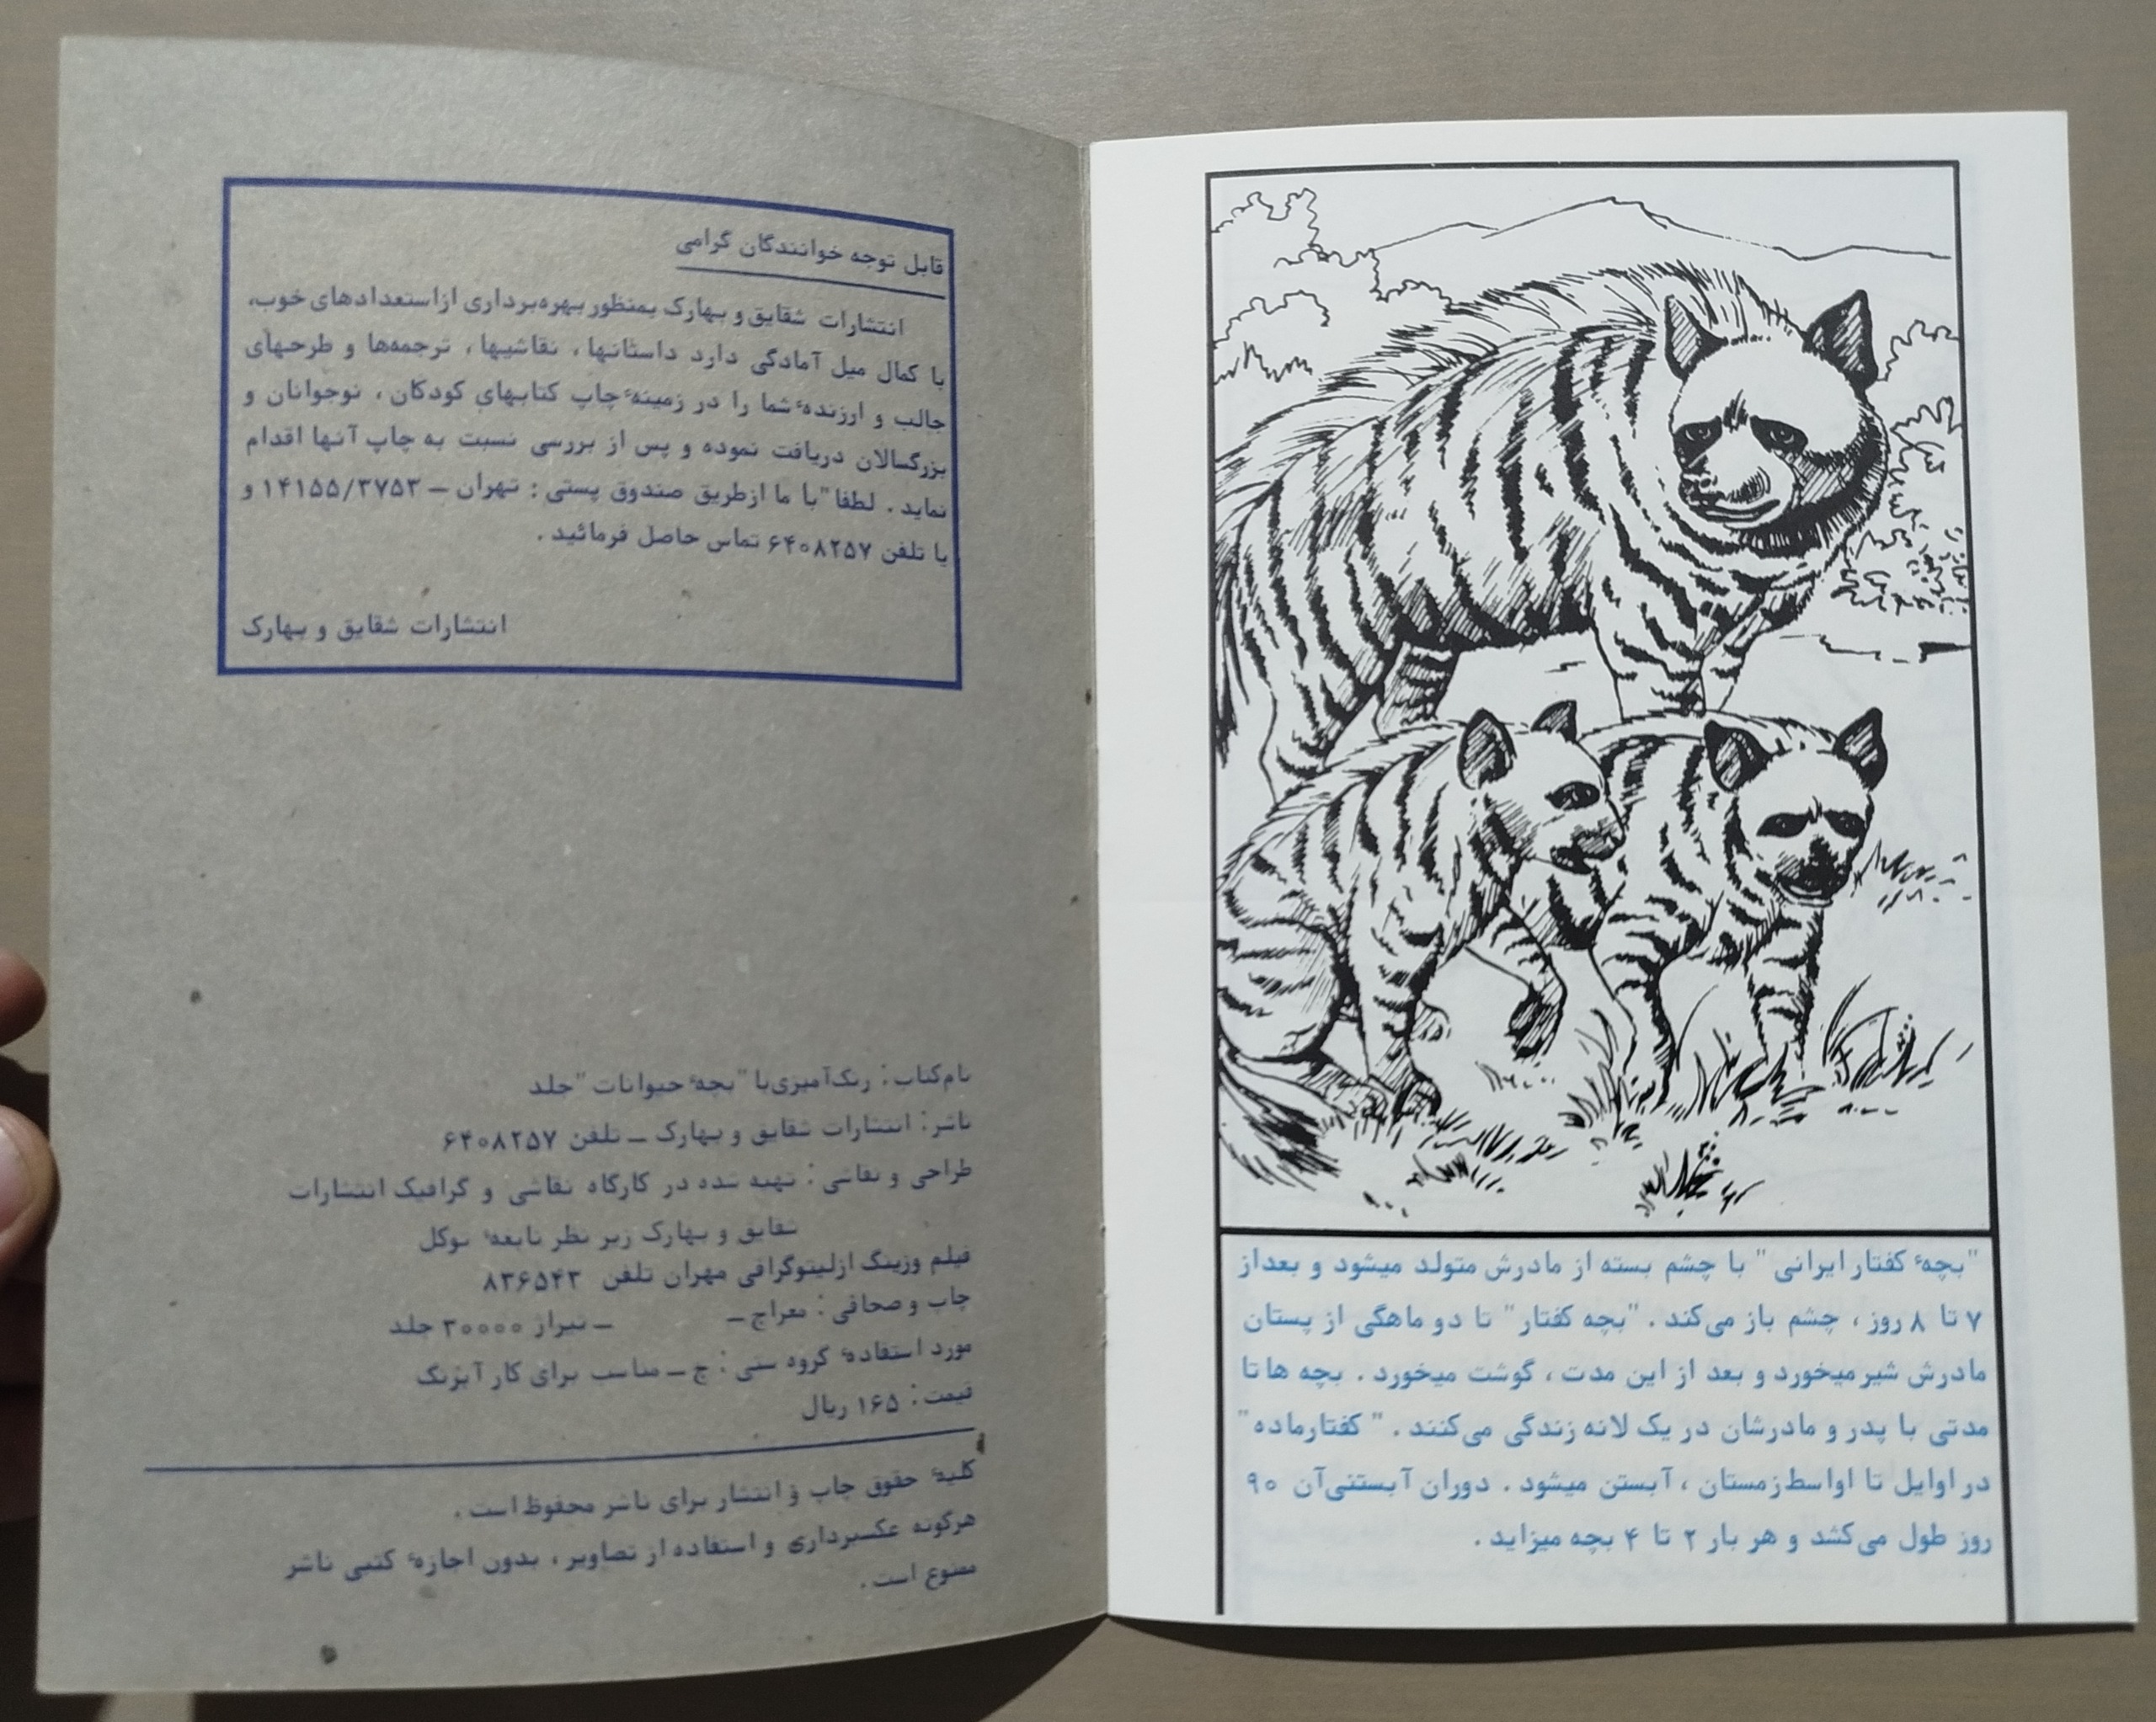 قابل توجه خوانندگان گرامی
انتشارات شقایق و بهارک بمنظور بهره‌برداری ازاستعدادهای خوب،
با کمال میل آمادگی دارد داستانها، نقاشیها، ترجمه‌ها و طرحهای
جالب و ارزندهٔ شما را در زمینهٔ چاپ کتابهای کودکان، نوجوانان و
بزرگسالان دریافت نموده و پس از بررسی نسبت به چاپ آنها اقدام
نماید. لطفا" با ما ازطریق صندوق پستی: تهران ــ ۱۴۱۵۵/۳۷۵۳ و
یا تلفن ۶۴۰۸۲۵۷ تماس حاصل فرمائید.
انتشارات شقایق و بهارک
نام‌کتاب: رنگ‌آمیزی‌با "بچهٔ حیوانات" جلد
ناشر: انتشارات شقایق و بهارک ــ تلفن ۶۴۰۸۲۵۷
طراحی و نقاشی: تهیه شده در کارگاه نقاشی و گرافیک انتشارات
شقایق و بهارک زیر نظر نابغهٔ توکل
فیلم وزینگ ازلیتوگرافی مهران تلفن ۸۳۶۵۴۳
چاپ و صحافی: معراج ــ ــ تیراژ ۳۰۰۰۰ جلد
مورد استفادهٔ گروه سنی: ج ــ مناسب برای کار آبرنگ
قیمت: ۱۶۵ ریال
کلیهٔ حقوق چاپ و انتشار برای ناشر محفوظ است.
هرگونه عکسبرداری و استفاده از تصاویر، بدون اجازهٔ کتبی ناشر
ممنوع است.
"بچهٔ کفتار ایرانی" با چشم بسته از مادرش متولد میشود و بعداز
۷ تا ۸ روز، چشم باز می‌کند. "بچه کفتار" تا دو ماهگی از پستان
مادرش شیر میخورد و بعد از این مدت، گوشت میخورد. بچه ها تا
مدتی با پدر و مادرشان در یک لانه زندگی می‌کنند. "کفتارماده"
در اوایل تا اواسط زمستان، آبستن میشود. دوران آبستنی‌آن ۹۰
روز طول می‌کشد و هر بار ۲ تا ۴ بچه میزاید.